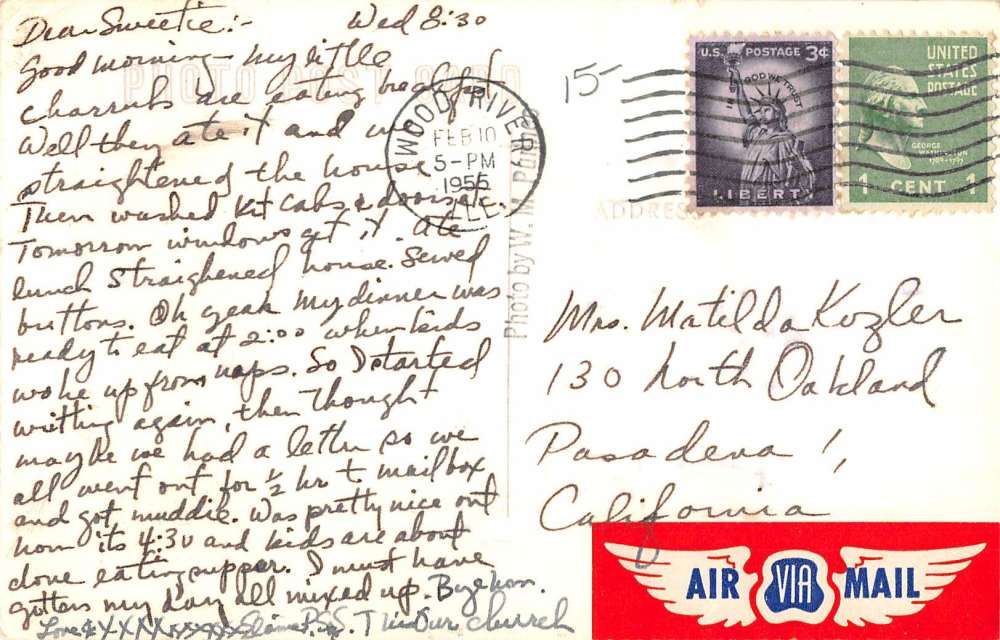 Dear Sweetie:- Wed 8:30
Good morning - my little
charrubs are eating breakfast
Well they ate it and we
straightened the house
Then washed kit cabs & doors
Tomorrow windows get it. Ate
lunch Straighened house. Sewed
buttons. Oh yeah my dinner was
ready to eat at 2:00 when kids
woke up from naps. So I started
writting again, then thought
maybe we had a letter so we
all went out for 1/2 hr to mailbox
and got muddie. Was pretty nice out
now its 4:30 and kids are about
done eating supper. I must have
gotten my day all mixed up. Bye hon.
Love & XXXX
PSS. This Our church
PHOTO POST CARD
WOOD RIVER
FEB 10
5-PM
1955
ILL.
Photo by W. M.
15-
U.S. POSTAGE 3¢
IN GOD WE TRUST
LIBERTY
UNITED
STATES
POSTAGE
GEORGE
WASHINGTON
1789-1797
1 CENT 1
ADDRESS
Mrs. Matilda Kozler
130 North Oakland
Pasadena 1,
California
AIR VIA MAIL